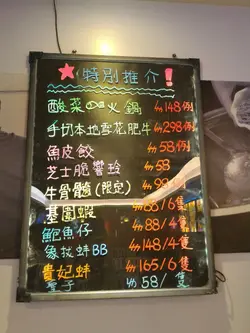 ★特別推介!
酸菜魚火鍋 $148/例
手切本地雪花肥牛 $298/例
魚皮餃 $58/例
芝士脆響玲 $58/
牛骨髓(限定) $98/
基圍蝦 $88/6隻
鮑魚仔 $88/4隻
象拔蚌BB $148/4隻
貴妃蚌 $165/6隻
聖子 $58/隻